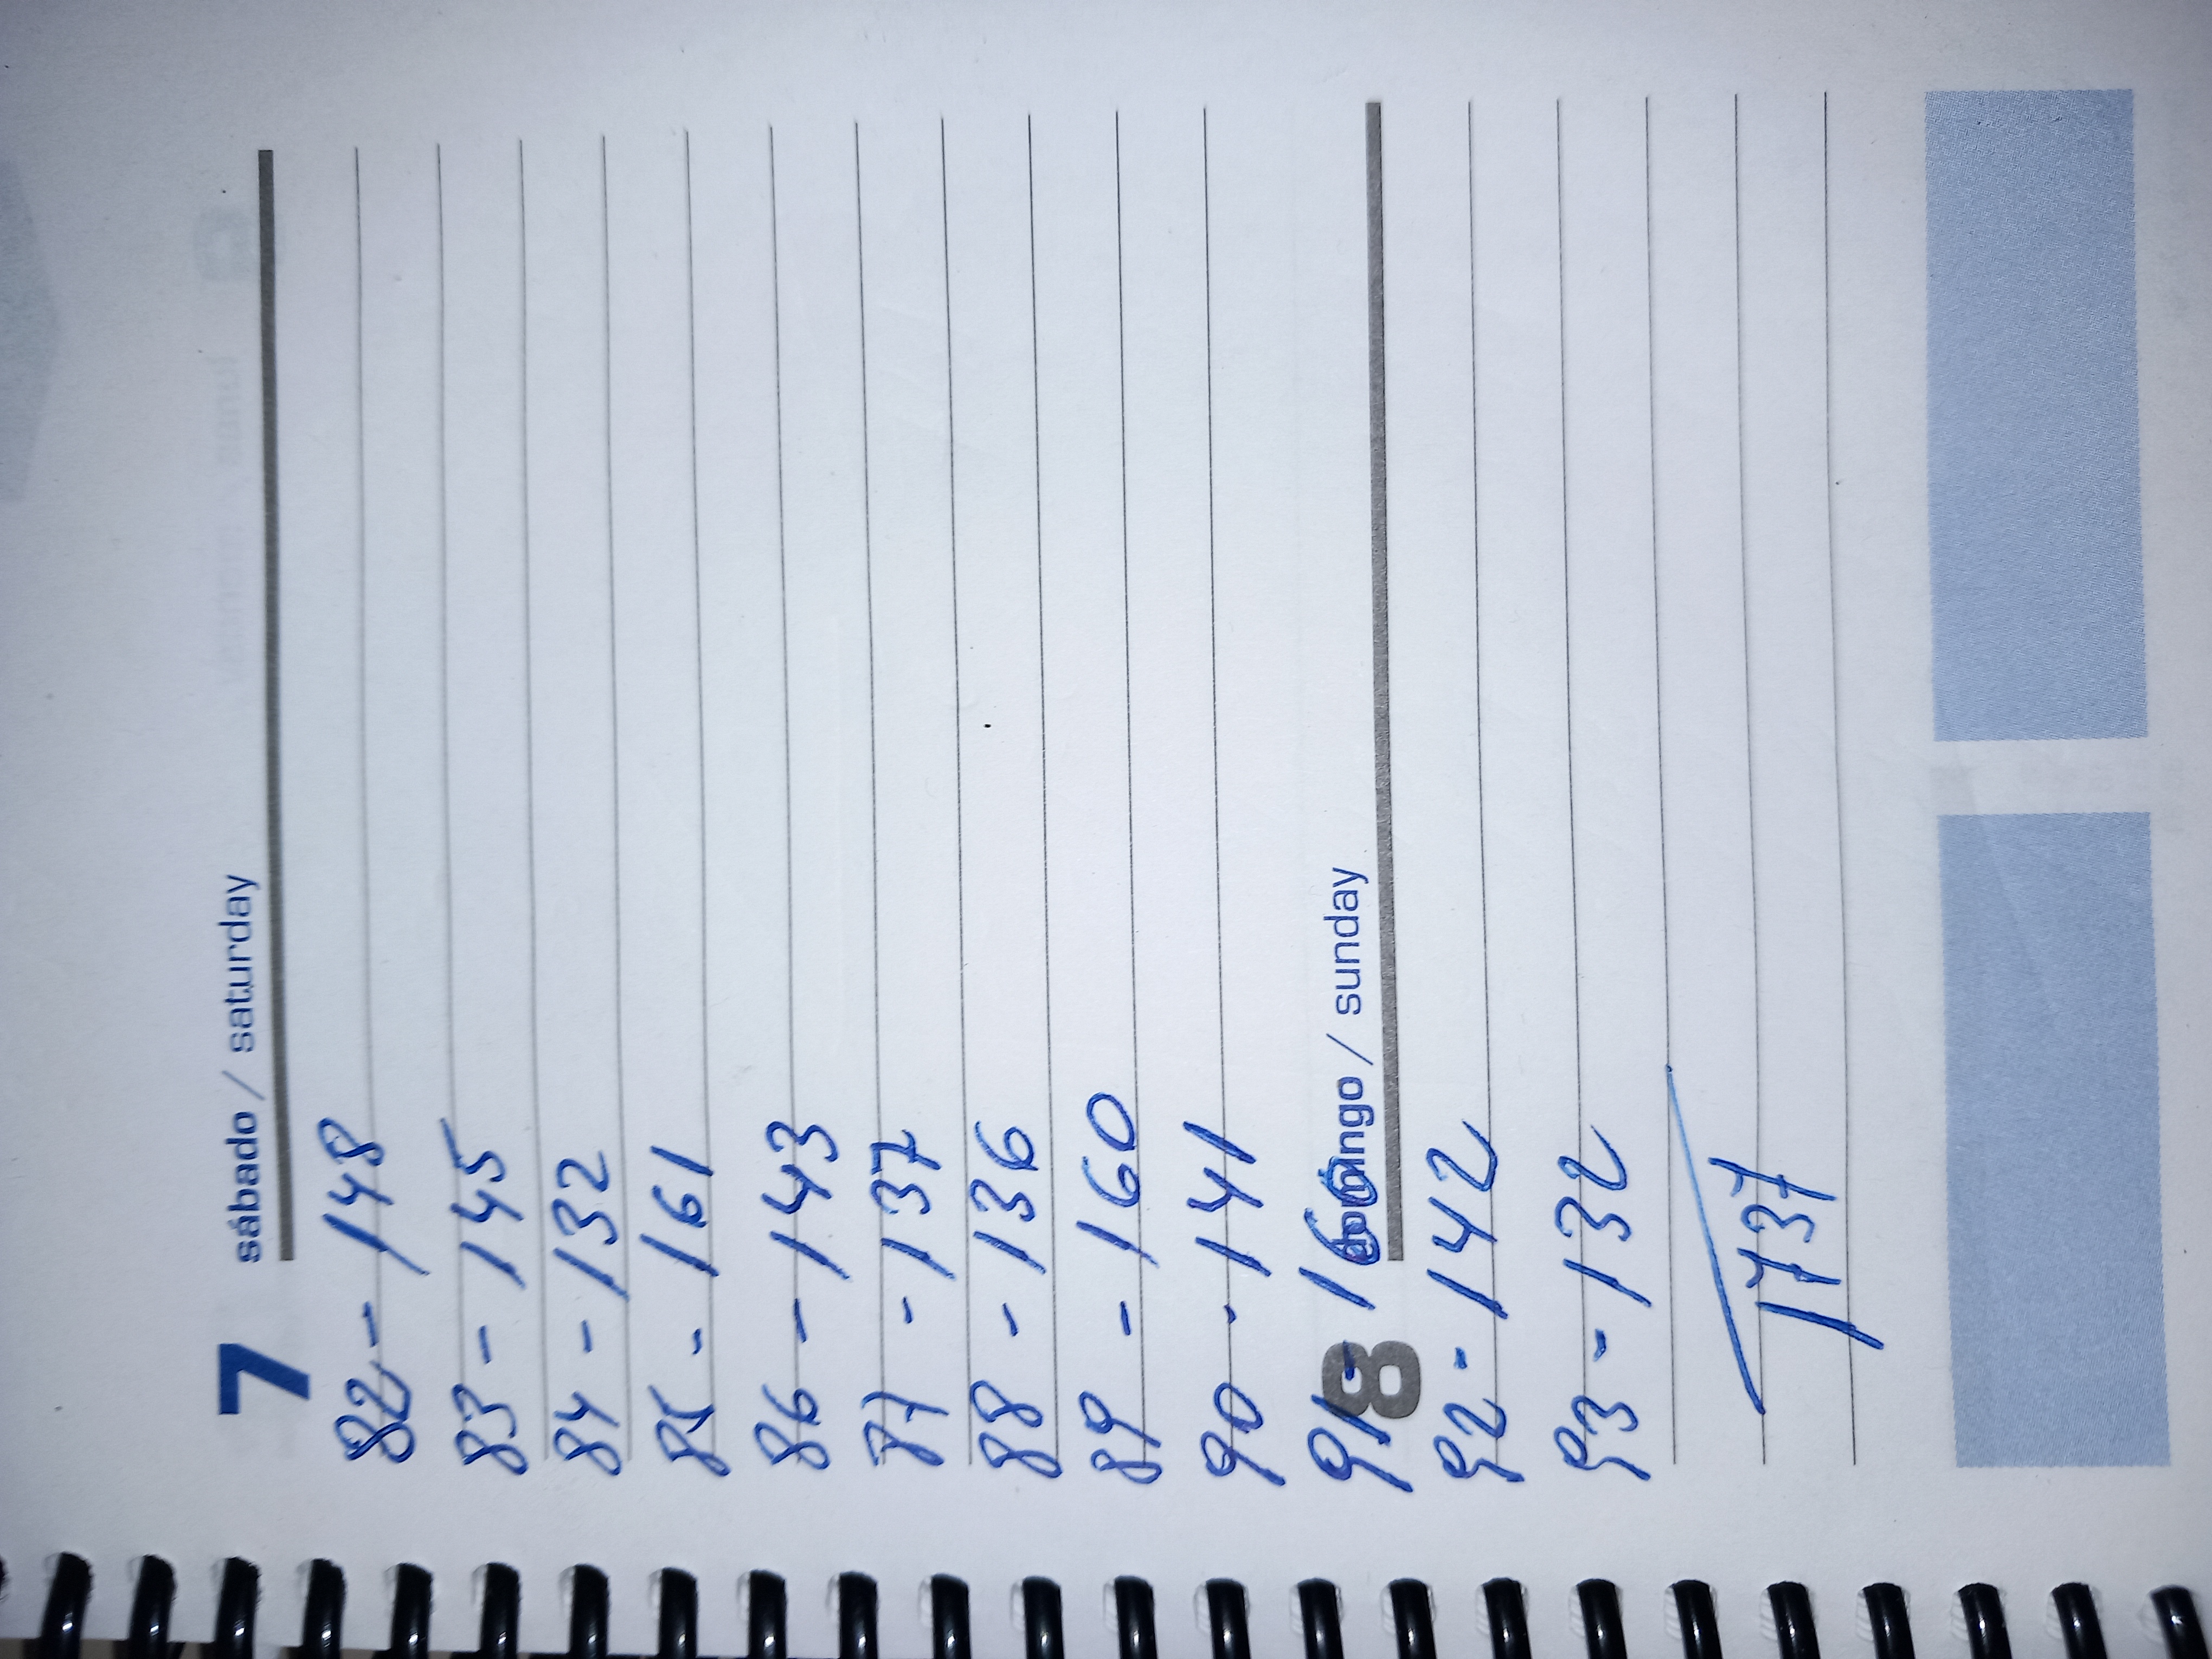 7 sábado / saturday
82 - 148
83 - 145
84 - 132
85 - 161
86 - 143
87 - 137
88 - 136
89 - 160
90 - 141
91 - 160
8 domingo / sunday
92 - 142
93 - 132
1737